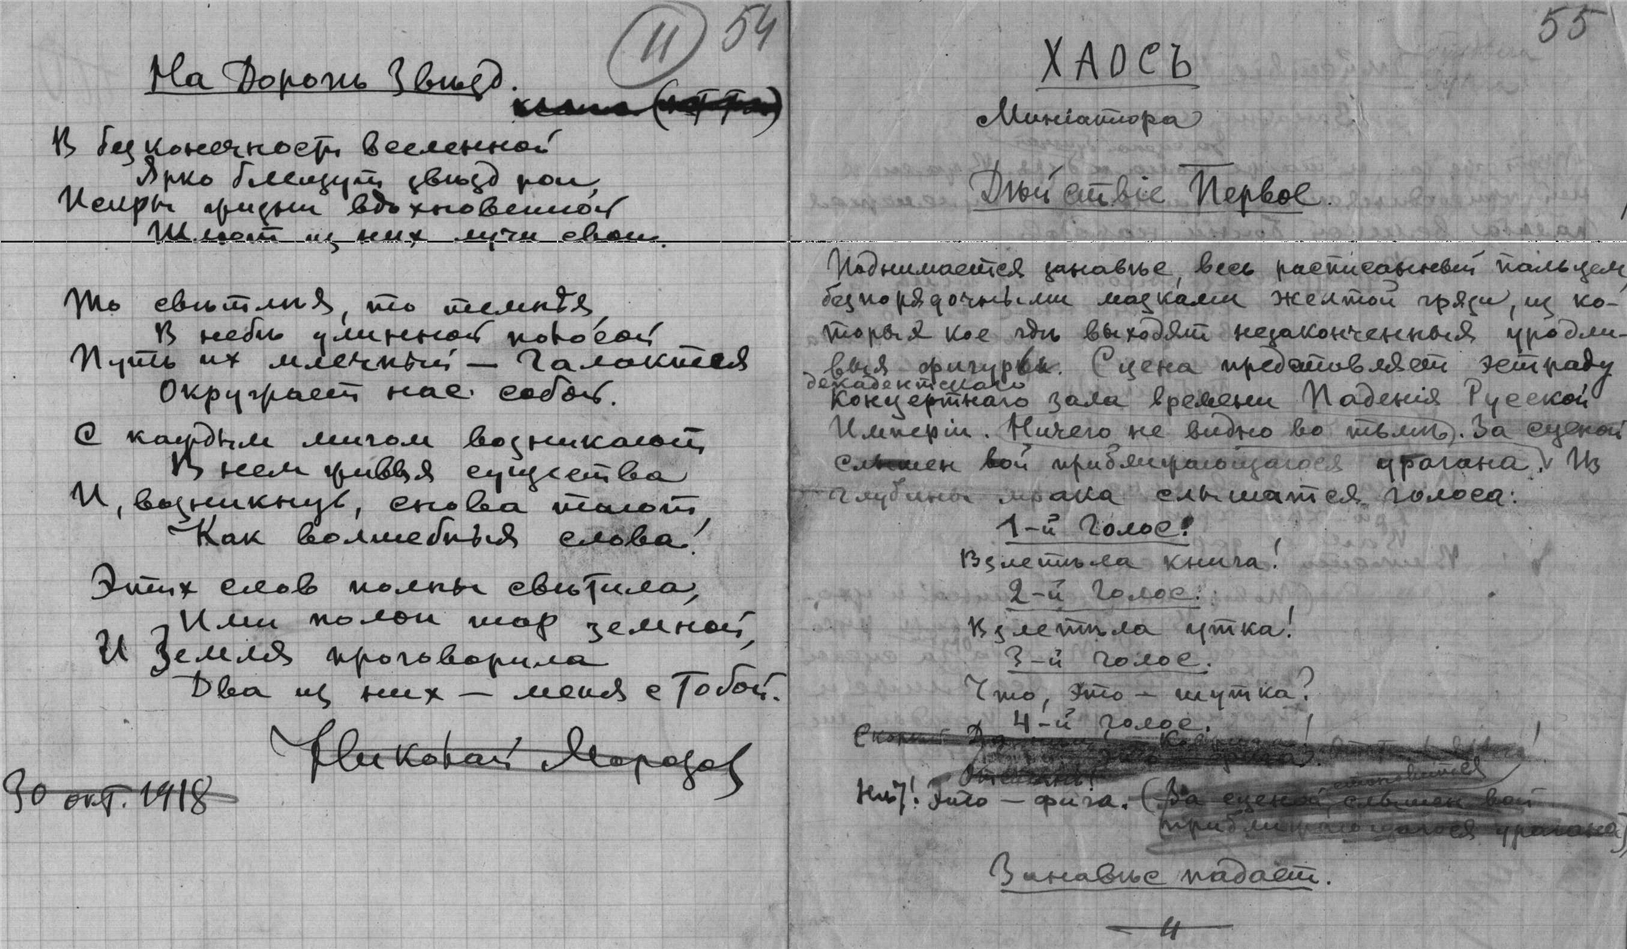 11 54
На Дорогѣ Звѣзд.
В безконечности вселенной
Ярко блещут звѣзд рои,
Искры жизни вдохновенной
Шлют из них лучи свои.
То свѣтлѣя, то темнѣя,
В небѣ длинной полосой
Путь их млечный — Галактея
Окружает нас собой.
С каждым мигом возникают
В нем живыя существа
И, возникнув, снова тают,
Как волшебныя слова!
Этих слов полны свѣтила,
Ими полон шар земной,
И Земля проговорила
Два из них — меня с Тобой.
Николай Морозов
30 окт. 1918
55
ХАОСЪ
Миніатюра
Дѣйствіе Первое.
Поднимается занавѣс, весь расписанный пальцем,
безпорядочными мазками желтой грязи, из ко-
торыя кое гдѣ выходят незаконченныя уродли-
выя фигуры. Сцена представляет эстраду
декадентскаго
Концертнаго зала времени Паденія Русской
Имперіи. (Ничего не видно во тьмѣ). За сценой
слышен вой приближающагося урагана. Из
глубины мрака слышатся голоса:
1-й Голос:
Взлетѣла книга!
2-й Голос:
Взлетѣла утка!
3-й голос.
Что, это — шутка?
4-й голос.
Нѣт! Это — фига. (За сценой слышен вой
становится
приближающагося урагана)
Занавѣс падает.